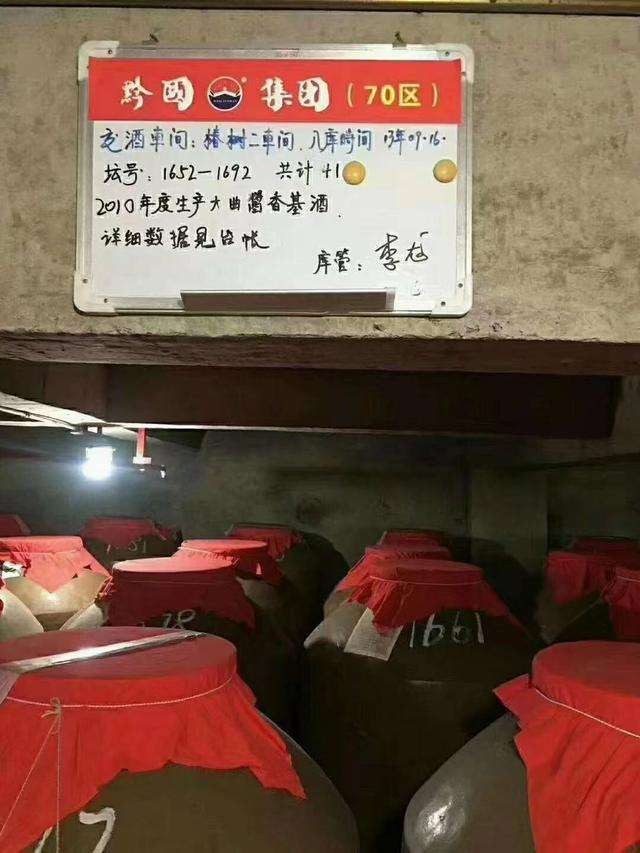 黔國 集团（70区）
交酒車间：椿树二車间．入库時间 13年09.16.
坛号：1652—1692 共计 41
2010年度生产大曲酱香基酒．
详细数据见台帐
库管：李
1661
78
17